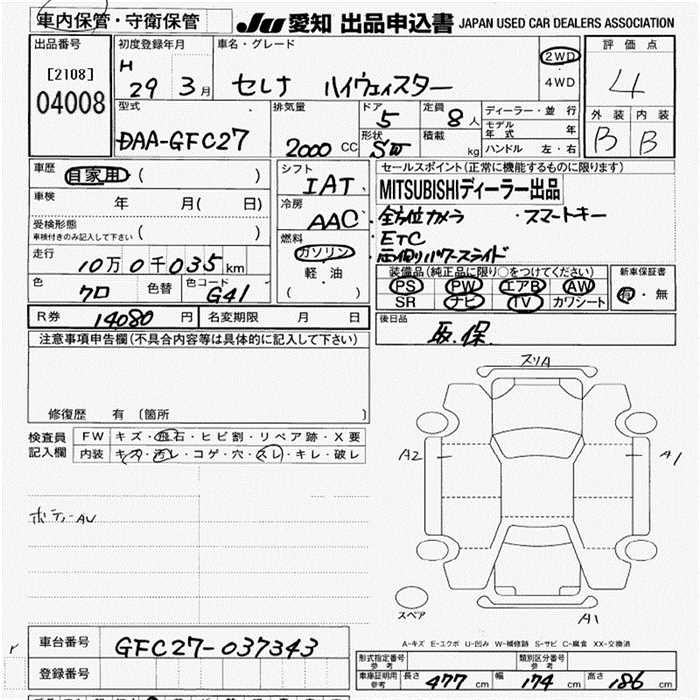 車内保管・守衛保管
JU 愛知 出品申込書 JAPAN USED CAR DEALERS ASSOCIATION
出品番号 初度登録年月 車名・グレード 評価点
[2108] H 29 3月 セレナ ハイウェイスター 2WD 4
04008 4WD
型式 排気量 ドア 5 定員 8人 ディーラー・並行 外装 内装
DAA-GFC27 2000 CC 形状 SW 積載 kg モデル年式 年 B B
ハンドル 左・右
車歴 自家用 ( ) シフト IAT セールスポイント(正常に機能するものに限ります)
車検 年 月( 日) 冷房 AAC MITSUBISHIディーラー出品
受検形態 ・全方位カメラ ・スマートキー
車検付きのみ記入して下さい ( ) 燃料 ・ETC
走行 10万0千035km ガソリン ・両側パワースライド
軽・油
色 クロ 色替 色コード G41 ( ) 装備品(純正品に限り○をつけてください) 新車保証書
PS PW エアB AW 有・無
SR ナビ TV カワシート
R券 14080円 名変期限 月 日 後日品
取.保.
注意事項申告欄(不具合内容等は具体的に記入して下さい)
スリA
修復歴 有 [箇所 ]
検査員 FW キズ・飛石・ヒビ割・リペア跡・X要
記入欄 内装 キズ・汚レ・コゲ・穴・スレ・キレ・破レ
A2 A1
ボディAU
スペア A1
A-キズ E-エクボ U-凹み W-補修跡 S-サビ C-腐食 XX-交換済
車台番号 GFC27-037343
形式指定番号 参考 類別区分番号 参考
登録番号 車庫証明用 参考 長さ 477cm 幅 174cm 高さ 186cm